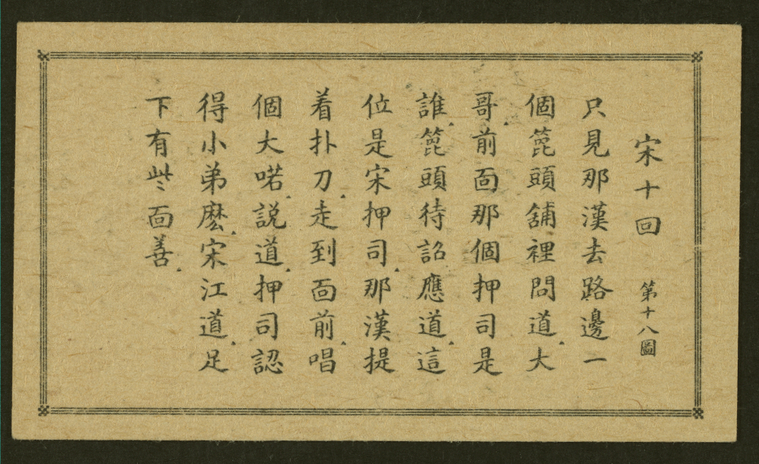 宋十回 第十八圖
只見那漢去路邊一
個篦頭舖裡問道.大
哥.前面那個押司是
誰.篦頭待詔應道.這
位是宋押司.那漢提
着扑刀.走到面前.唱
個大喏.說道.押司認
得小弟麽.宋江道.足
下有些面善.